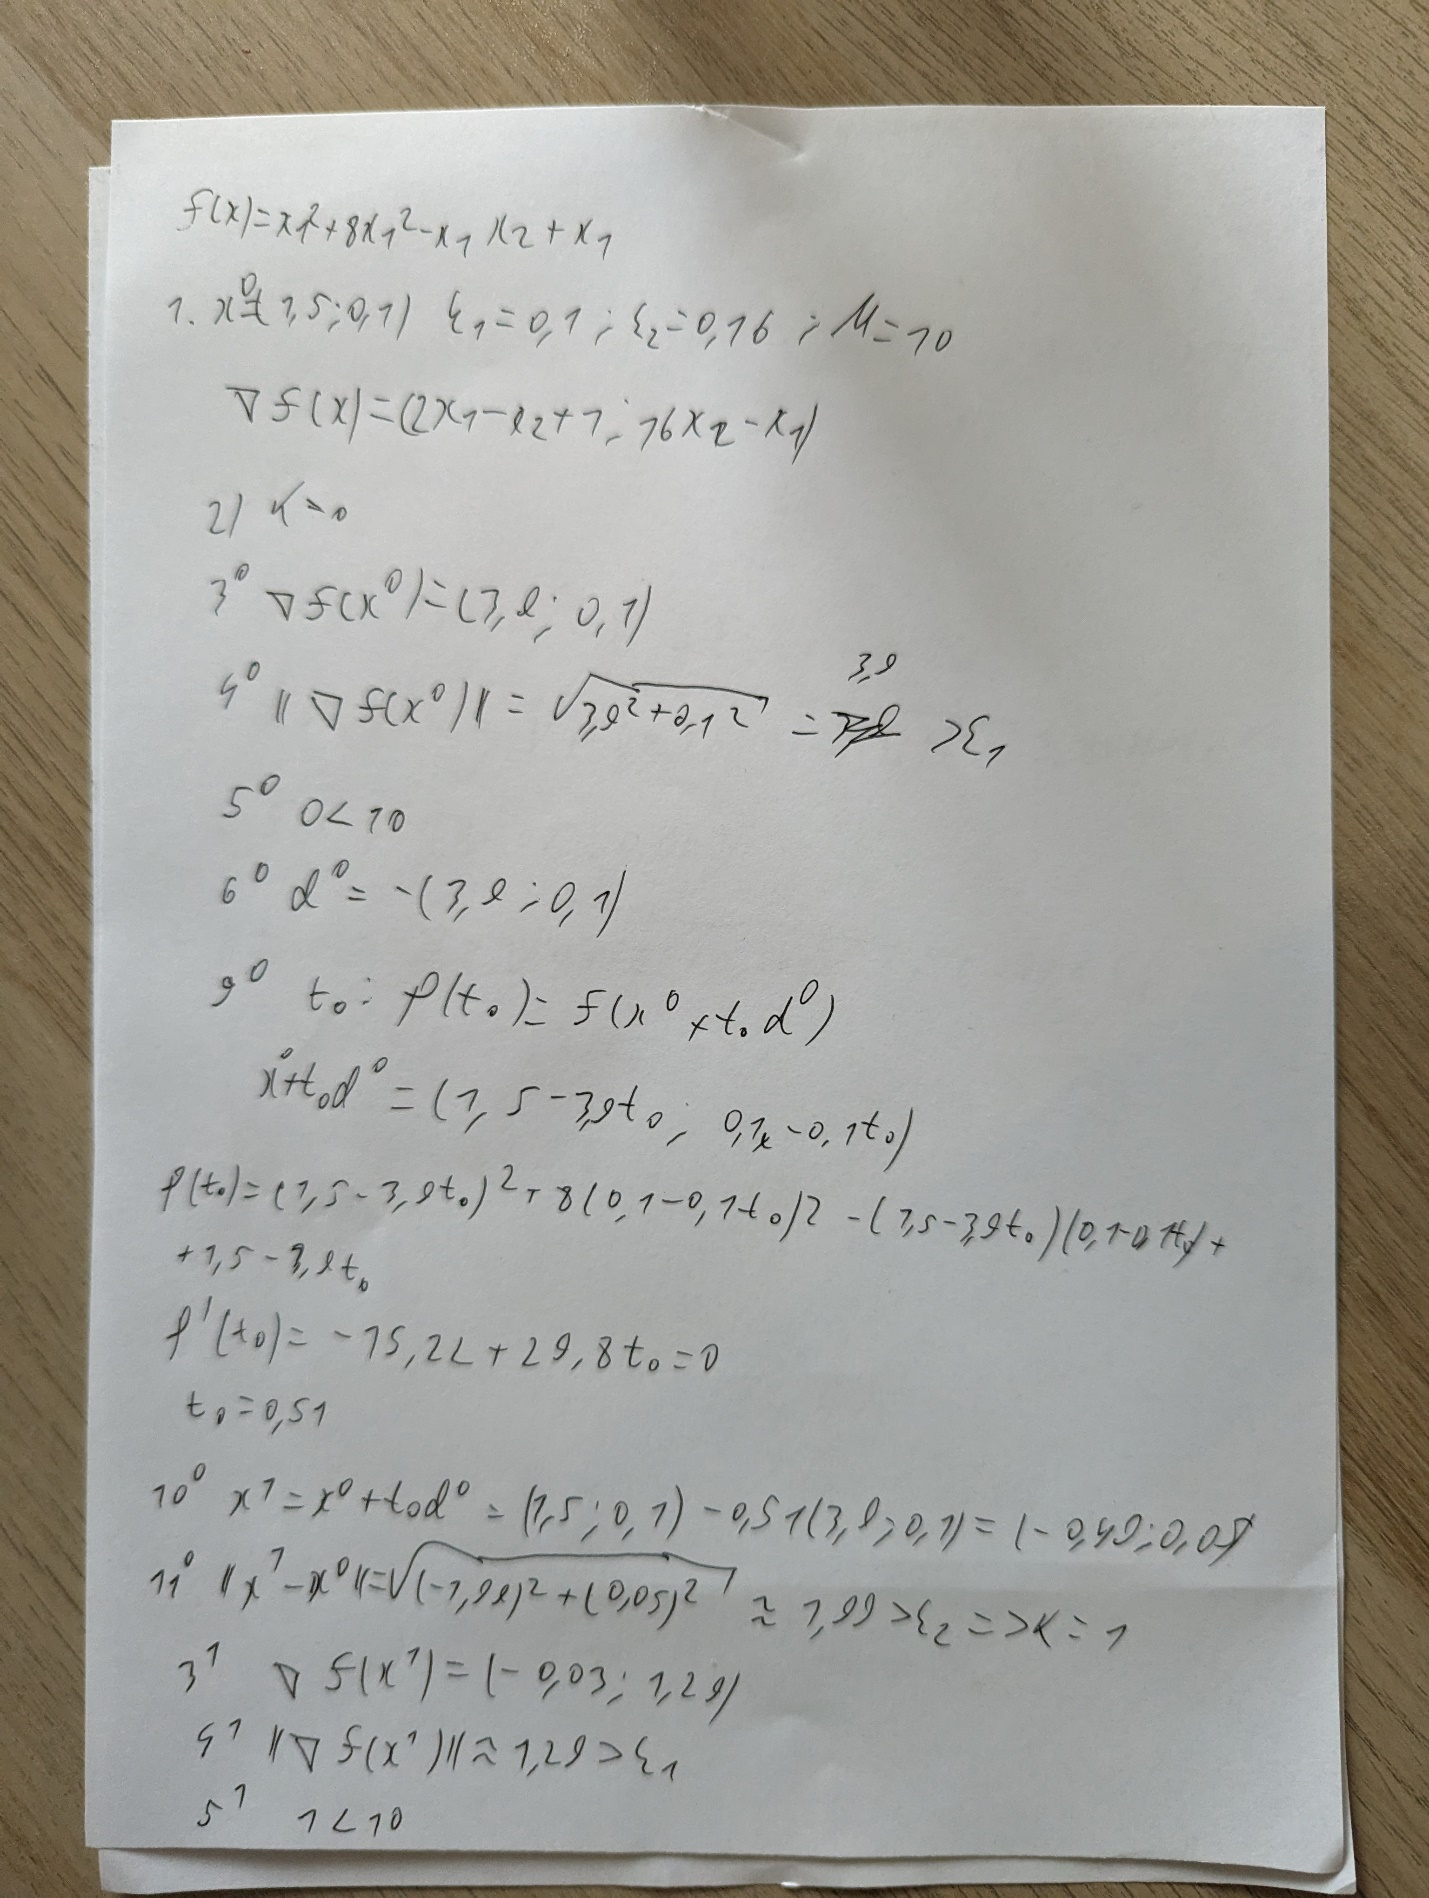 f(x)=x₁²+8x₁²-x₁ x₂+x₁
1. x⁰=(1,5;0,1) ε₁=0,1; ε₂=0,16; M=10
∇f(x)=(2x₁-x₂+1; 16x₂-x₁)
2) K=0
3⁰ ∇f(x⁰)=(3,9; 0,1)
4⁰ ||∇f(x⁰)||=√(3,9²+0,1²) = 3,9 >ε₁
5⁰ 0<10
6⁰ d⁰=-(3,9;0,1)
9⁰ t₀: φ(t₀)=f(x⁰+t₀d⁰)
x⁰+t₀d⁰=(1,5-3,9t₀; 0,1-0,1t₀)
φ(t₀)=(1,5-3,9t₀)²+8(0,1-0,1t₀)2-(1,5-3,9t₀)(0,1-0,1t₀)+
+1,5-3,9t₀
φ'(t₀)=-15,22+29,8t₀=0
t₀=0,51
10⁰ x¹=x⁰+t₀d⁰=(1,5;0,1)-0,51(3,9;0,1)=(-0,49;0,05)
11⁰ ||x¹-x⁰||=√((-1,99)²+(0,05)²) ≈1,99>ε₂=>K=1
3¹ ∇f(x¹)=(-0,03; 1,29)
4¹ ||∇f(x¹)||≈1,29>ε₁
5¹ 1<10